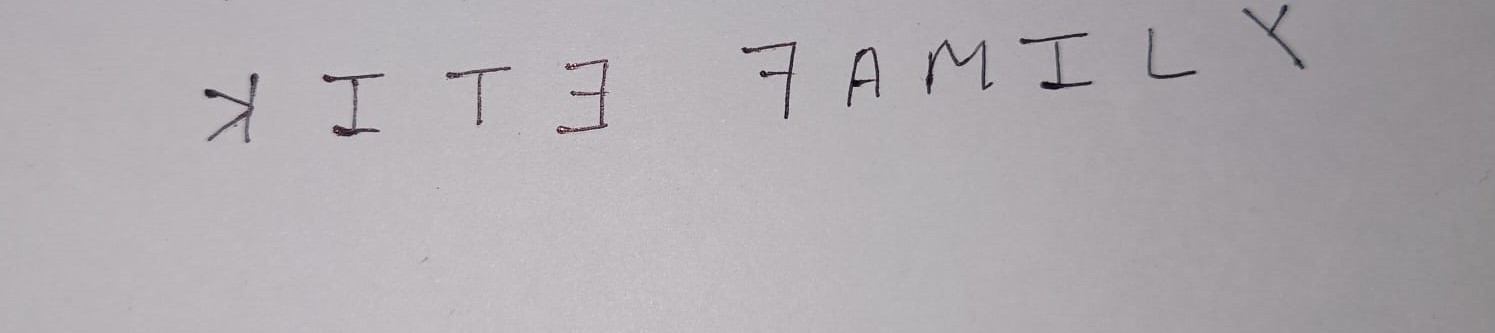 KITE FAMILY